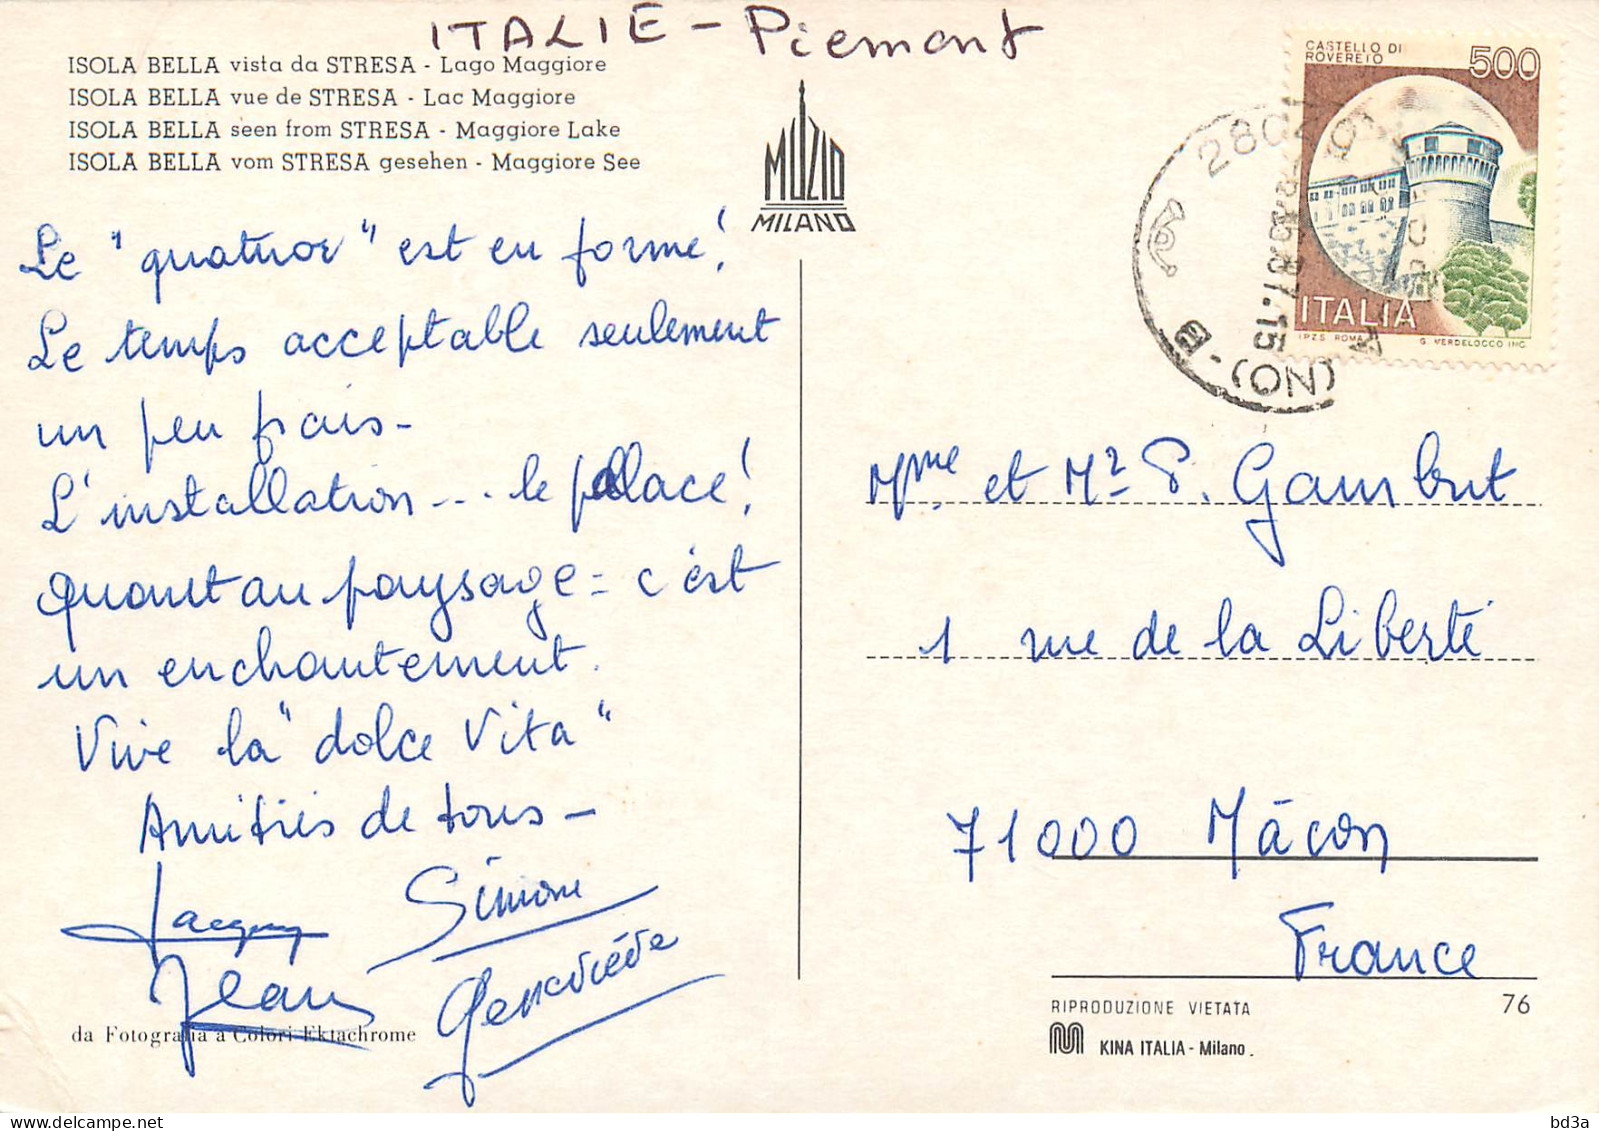 ITALIE - Piemont
ISOLA BELLA vista da STRESA - Lago Maggiore
ISOLA BELLA vue de STRESA - Lac Maggiore
ISOLA BELLA seen from STRESA - Maggiore Lake
ISOLA BELLA vom STRESA gesehen - Maggiore See
MUZIO
MILANO
CASTELLO DI
ROVERETO
500
ITALIA
I.P.Z.S. ROMA
G. VERDELOCCO INC.
(NO)
Le "quatuor" est en forme!
Le temps acceptable seulement
un peu frais -
L'installation... le pallace!
Quant au paysage = c'est
un enchantement.
Vive la "dolce Vita"
Amitiés de tous -
Jacquy Simone
Jean Geneviève
da Fotografia a Colori Ektachrome
Mme et Mr P. Gambut
1 rue de la Liberté
71000 Mâcon
France
RIPRODUZIONE VIETATA 76
KINA ITALIA - Milano.
bd3a